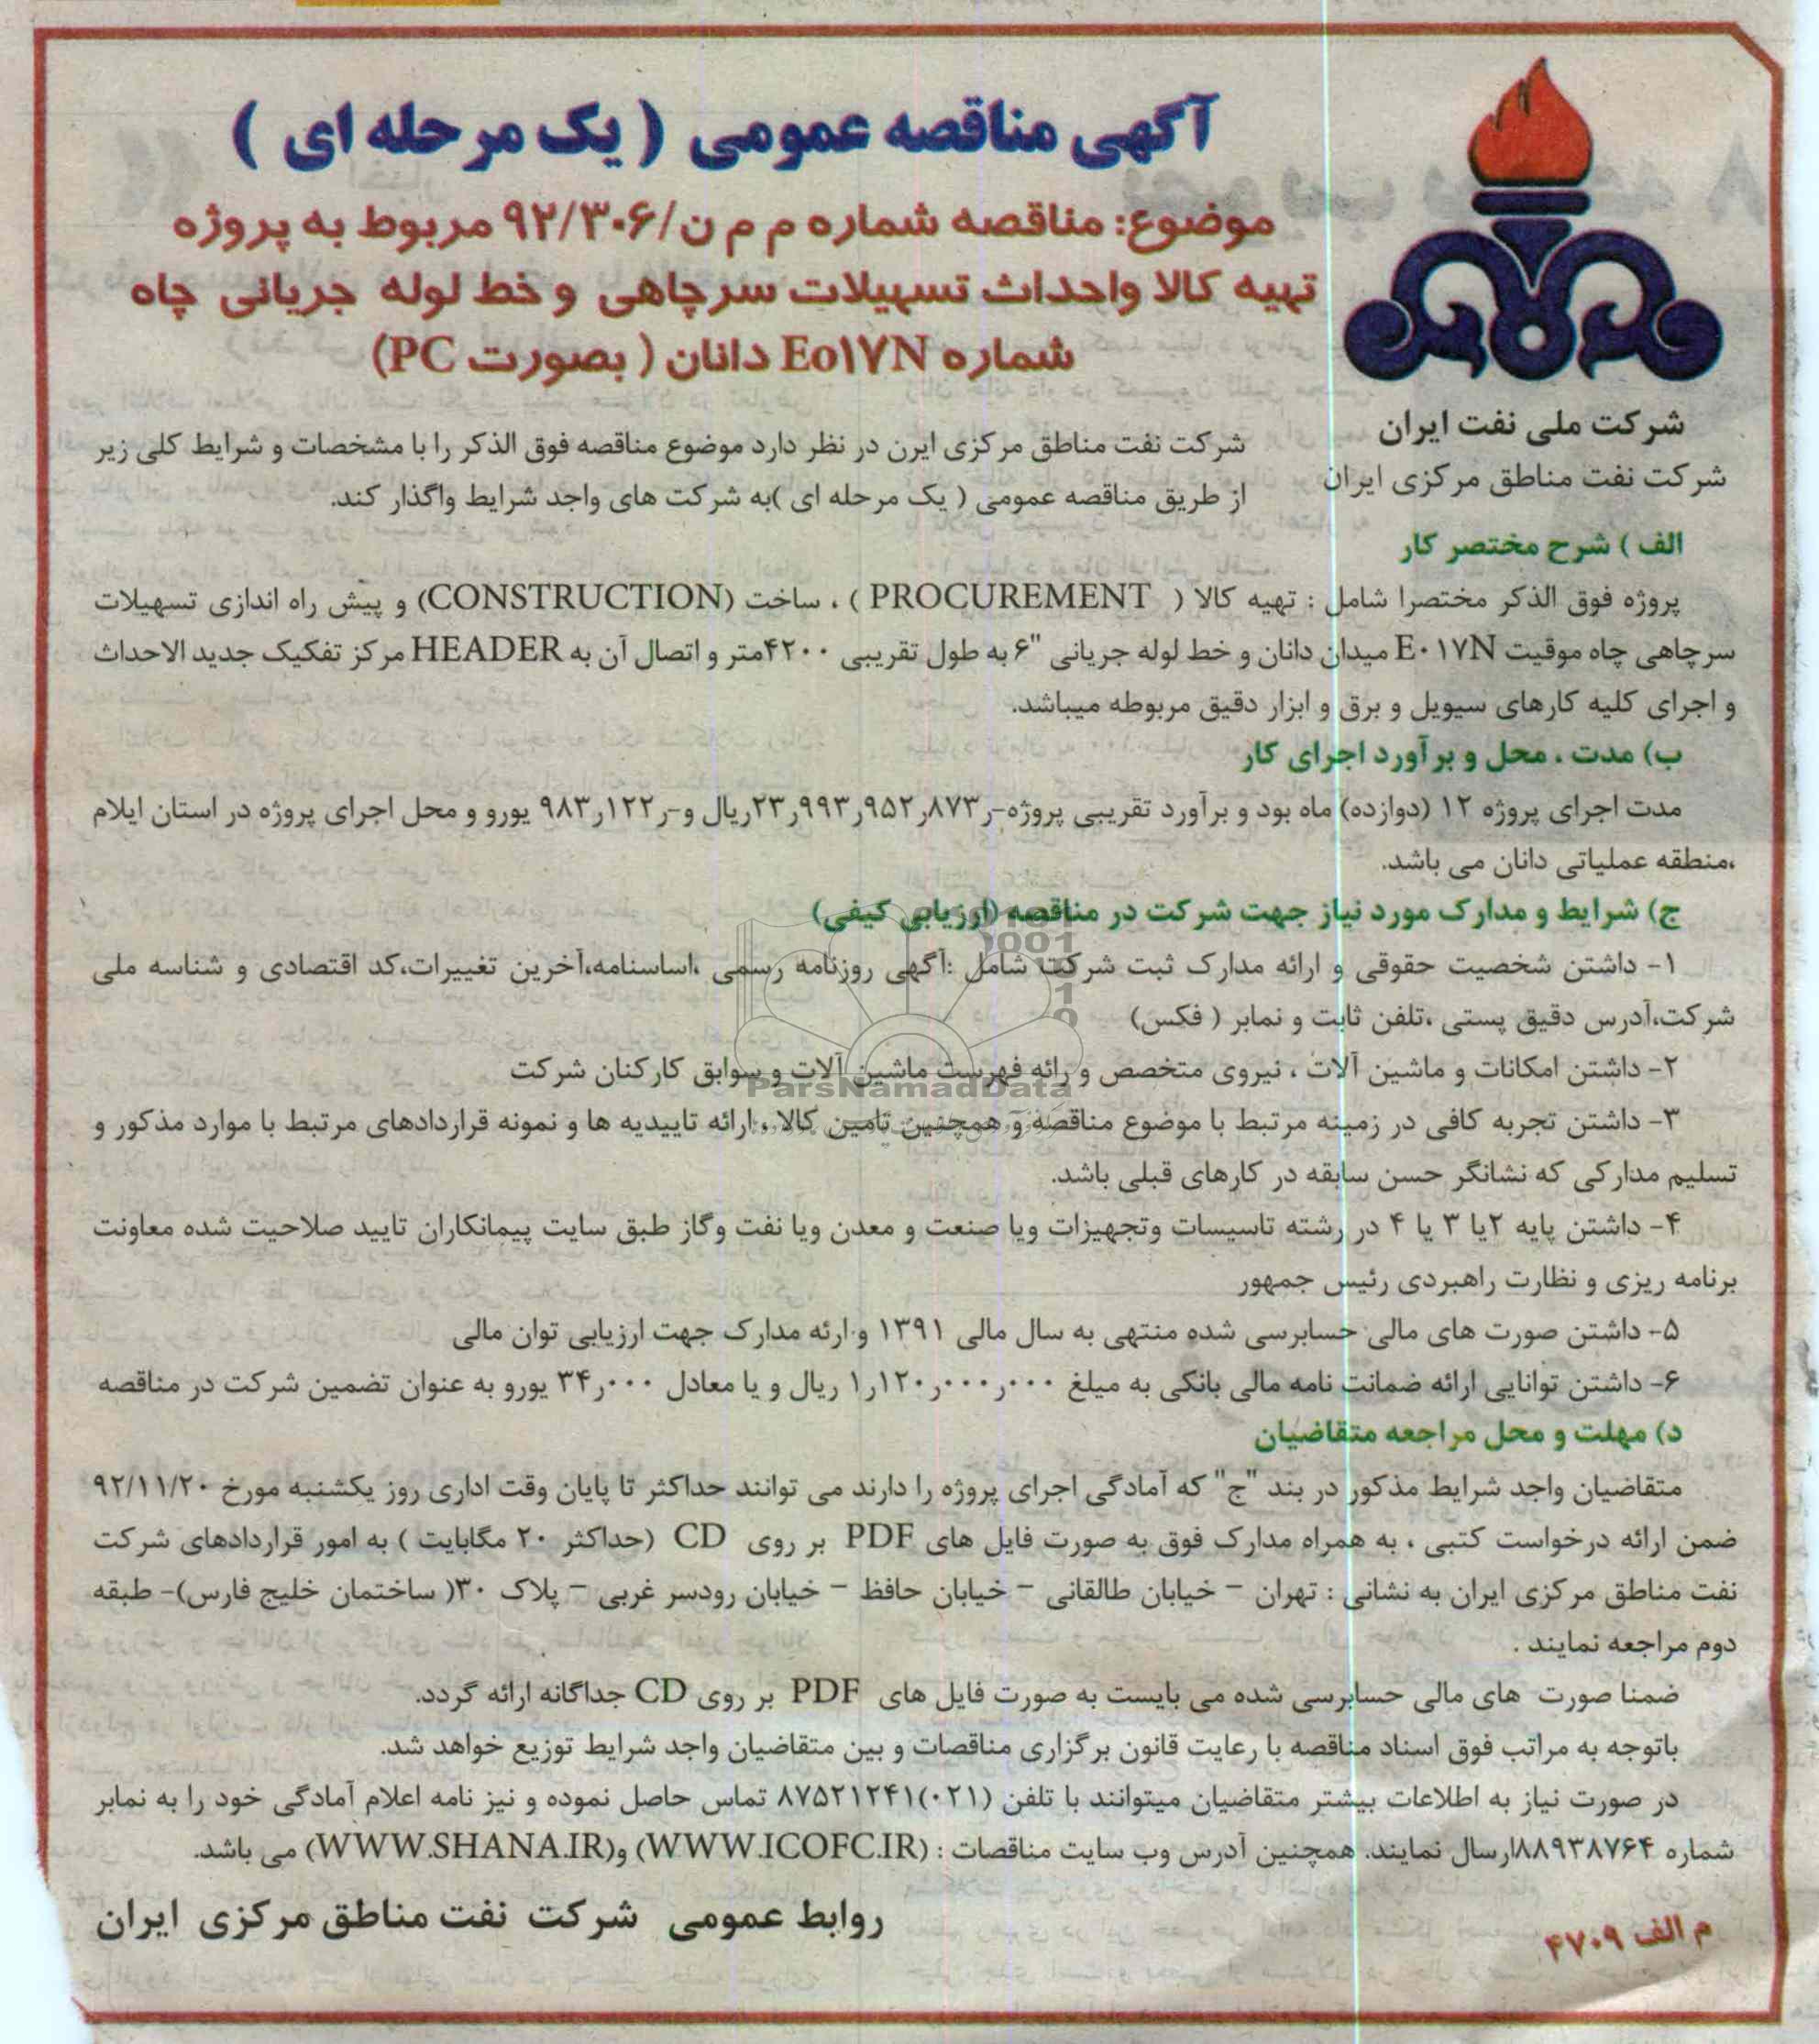 آگهی مناقصه عمومی ( یک مرحله ای )
موضوع: مناقصه شماره م م ن/۹۲/۳۰۶ مربوط به پروژه
تهیه کالا واحداث تسهیلات سرچاهی و خط لوله جریانی چاه
شماره Eo۱۷N دانان ( بصورت PC)
شرکت ملی نفت ایران
شرکت نفت مناطق مرکزی ایران
شرکت نفت مناطق مرکزی ایرن در نظر دارد موضوع مناقصه فوق الذکر را با مشخصات و شرایط کلی زیر
از طریق مناقصه عمومی ( یک مرحله ای )به شرکت های واجد شرایط واگذار کند.
الف ) شرح مختصر کار
پروژه فوق الذکر مختصرا شامل : تهیه کالا ( PROCUREMENT ) ، ساخت (CONSTRUCTION) و پیش راه اندازی تسهیلات
سرچاهی چاه موقیت E۰۱۷N میدان دانان و خط لوله جریانی "۶ به طول تقریبی ۴۲۰۰متر و اتصال آن به HEADER مرکز تفکیک جدید الاحداث
و اجرای کلیه کارهای سیویل و برق و ابزار دقیق مربوطه میباشد.
ب) مدت ، محل و برآورد اجرای کار
مدت اجرای پروژه ۱۲ (دوازده) ماه بود و برآورد تقریبی پروژه-ر۲۳ر۹۹۳ر۹۵۲ر۸۷۳ریال و-ر۹۸۳ر۱۲۲ یورو و محل اجرای پروژه در استان ایلام
،منطقه عملیاتی دانان می باشد.
ج) شرایط و مدارک مورد نیاز جهت شرکت در مناقصه (ارزیابی کیفی)
۱- داشتن شخصیت حقوقی و ارائه مدارک ثبت شرکت شامل :آگهی روزنامه رسمی ،اساسنامه،آخرین تغییرات،کد اقتصادی و شناسه ملی
شرکت،آدرس دقیق پستی ،تلفن ثابت و نمابر ( فکس)
۲- داشتن امکانات و ماشین آلات ، نیروی متخصص و رائه فهرست ماشین آلات و سوابق کارکنان شرکت
ParsNamadData
۳- داشتن تجربه کافی در زمینه مرتبط با موضوع مناقصه و همچنین تامین کالا ، ارائه تاییدیه ها و نمونه قراردادهای مرتبط با موارد مذکور و
تسلیم مدارکی که نشانگر حسن سابقه در کارهای قبلی باشد.
۴- داشتن پایه ۲یا ۳ یا ۴ در رشته تاسیسات وتجهیزات ویا صنعت و معدن ویا نفت وگاز طبق سایت پیمانکاران تایید صلاحیت شده معاونت
برنامه ریزی و نظارت راهبردی رئیس جمهور
۵- داشتن صورت های مالی حسابرسی شده منتهی به سال مالی ۱۳۹۱ و ارئه مدارک جهت ارزیابی توان مالی
۶- داشتن توانایی ارائه ضمانت نامه مالی بانکی به میلغ ۱ر۱۲۰ر۰۰۰ر۰۰۰ ریال و یا معادل ۳۴ر۰۰۰ یورو به عنوان تضمین شرکت در مناقصه
د) مهلت و محل مراجعه متقاضیان
متقاضیان واجد شرایط مذکور در بند "ج" که آمادگی اجرای پروژه را دارند می توانند حداکثر تا پایان وقت اداری روز یکشنبه مورخ ۹۲/۱۱/۲۰
ضمن ارائه درخواست کتبی ، به همراه مدارک فوق به صورت فایل های PDF بر روی CD (حداکثر ۲۰ مگابایت ) به امور قراردادهای شرکت
نفت مناطق مرکزی ایران به نشانی : تهران - خیابان طالقانی - خیابان حافظ - خیابان رودسر غربی - پلاک ۳۰( ساختمان خلیج فارس)- طبقه
دوم مراجعه نمایند .
ضمنا صورت های مالی حسابرسی شده می بایست به صورت فایل های PDF بر روی CD جداگانه ارائه گردد.
باتوجه به مراتب فوق اسناد مناقصه با رعایت قانون برگزاری مناقصات و بین متقاضیان واجد شرایط توزیع خواهد شد.
در صورت نیاز به اطلاعات بیشتر متقاضیان میتوانند با تلفن ۸۷۵۲۱۲۴۱(۰۲۱) تماس حاصل نموده و نیز نامه اعلام آمادگی خود را به نمابر
شماره ۸۸۹۳۸۷۶۴ارسال نمایند. همچنین آدرس وب سایت مناقصات : (WWW.ICOFC.IR) و(WWW.SHANA.IR) می باشد.
روابط عمومی شرکت نفت مناطق مرکزی ایران
م الف ۴۷۰۹